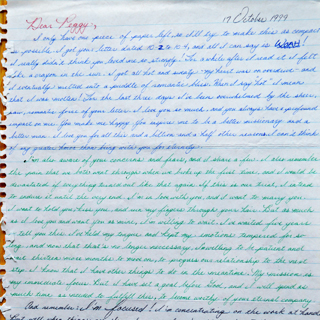 Dear Peggy,
17 October 1979
I only have one piece of paper left so I'll try to make this as compact
as possible. I got your letter dated 10-2 & 4, and all I can say is WOOOH!
I really didn't think you loved me so strongly. For a while after I read it I felt
like a wagon in the sun. I got all hot and sweaty "my heart was on" and
I eventually melted into a puddle of romantic ideas. Then I say "did I mean
that was melted? For the last three days I've been overwhelmed by the sheer,
raw, massive force of your letter. I love you so much, and you always have a profound
impact on me. You make me happy. You inspire me to be a better missionary and a
better man. I love you for all this and a billion and a half other reasons and I think
if my brain have been being with you for eternity.
I'm also aware of your concerns and fears, and I share a few. I also remember
the pain that we both went through when we broke up the first time, and I would be
devastated if anything turned out like that again. If this is our trial, I intend
to endure it until the very end. I'm in love with you, and I want to marry you.
I want to hold you, kiss you, and run my fingers through your hair. But as much
as I love you and want you as mine, I'm willing to wait. I've waited five years
to tell you this. I've held my tongue and kept my emotions tempered for so
long, and now that that's no longer necessary, I'm willing to be patient and
wait thirteen more months to move on, to prepare our relationship to the next
step. I know that I had other things to do in the meantime. My mission is
my immediate focus. But I have set a goal before God, and I will spend as
much time as needed to fulfill this, to become worthy of your eternal company.
And remember: I'm focused! I'm concentrating on the work at hand.